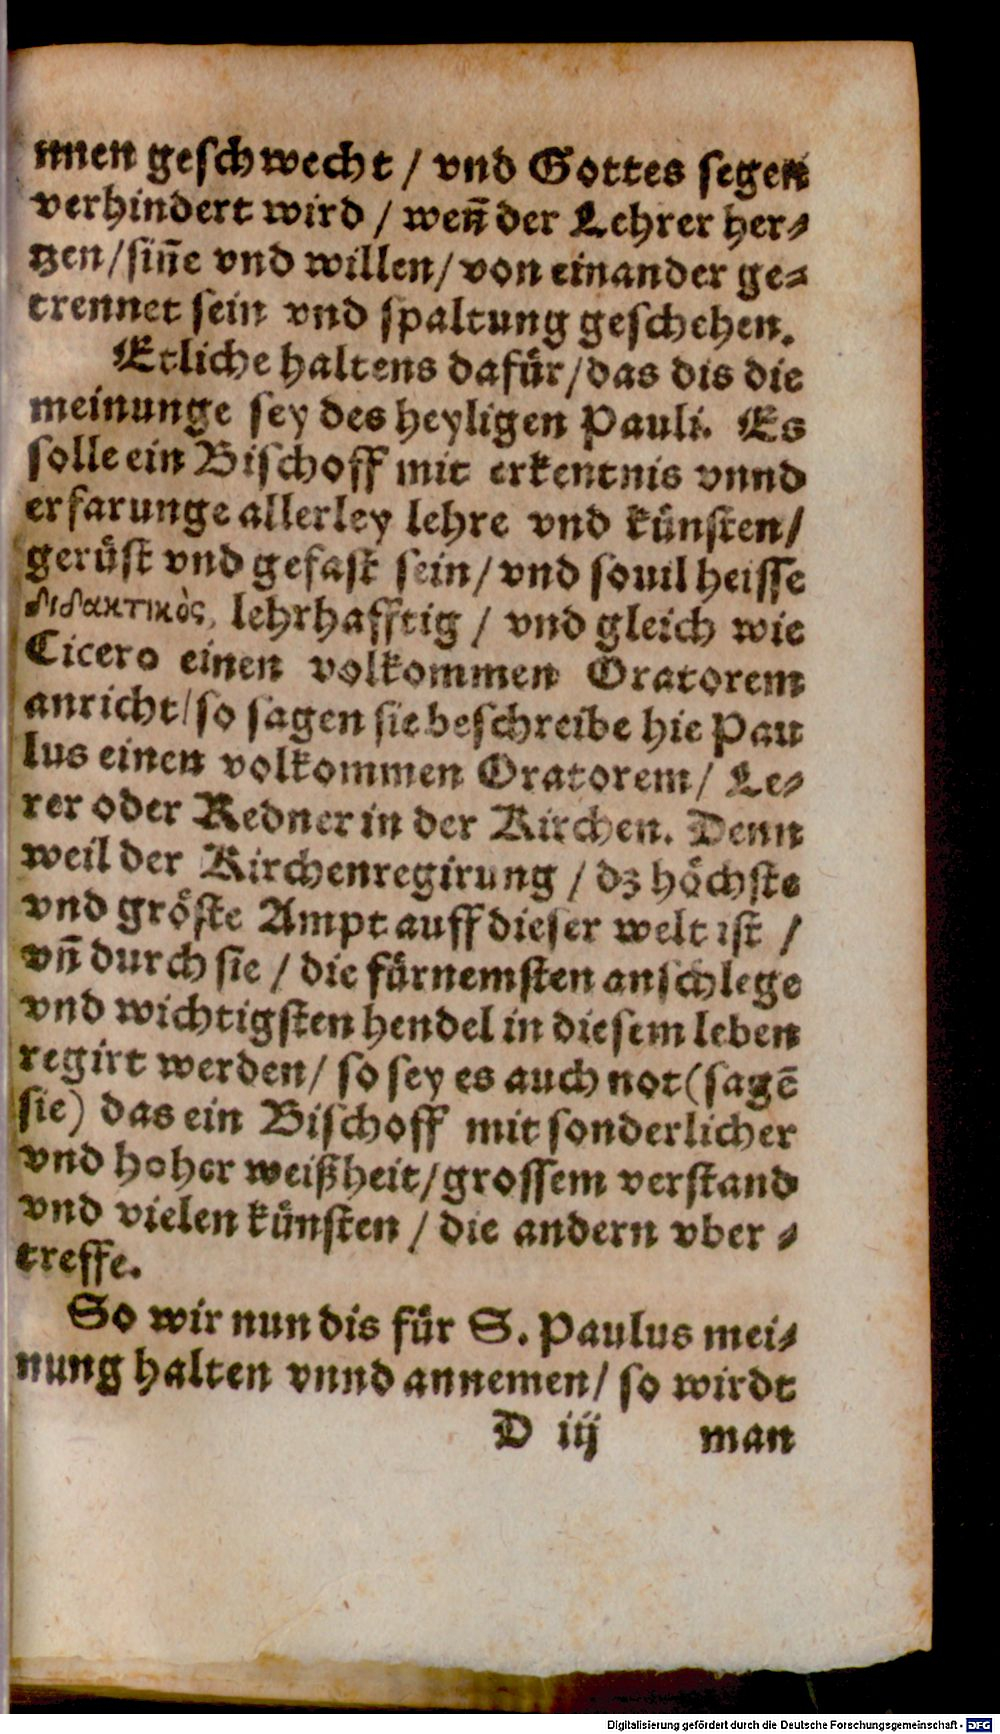 nnen geschwecht / vnd Gottes segen
verhindert wird / weñ der Lehrer her⸗
tzen / siñe vnd willen / von einander ge⸗
trennet sein vnd spaltung geschehen.
Etliche haltens dafür / das dis die
meinunge sey des heyligen Pauli. Es
solle ein Bischoff mit erkentnis vnnd
erfarunge allerley lehre vnd künsten /
gerüst vnd gefast sein / vnd souil heisse
διδακτικὸς, lehrhafftig / vnd gleich wie
Cicero einen volkommen Oratorem
anricht / so sagen sie beschreibe hie Pau
lus einen volkommen Oratorem / Le⸗
rer oder Redner in der Kirchen. Denn
weil der Kirchenregirung / dz höchste
vnd gröste Ampt auff dieser welt ist /
vñ durch sie / die fürnemsten anschlege
vnd wichtigsten hendel in diesem leben
regirt werden / so sey es auch not (sagē
sie) das ein Bischoff mit sonderlicher
vnd hoher weißheit / grossem verstand
vnd vielen künsten / die andern vber⸗
treffe.
So wir nun dis für S. Paulus mei⸗
nung halten vnnd annemen / so wirdt
D iij man
Digitalisierung gefördert durch die Deutsche Forschungsgemeinschaft - DFG